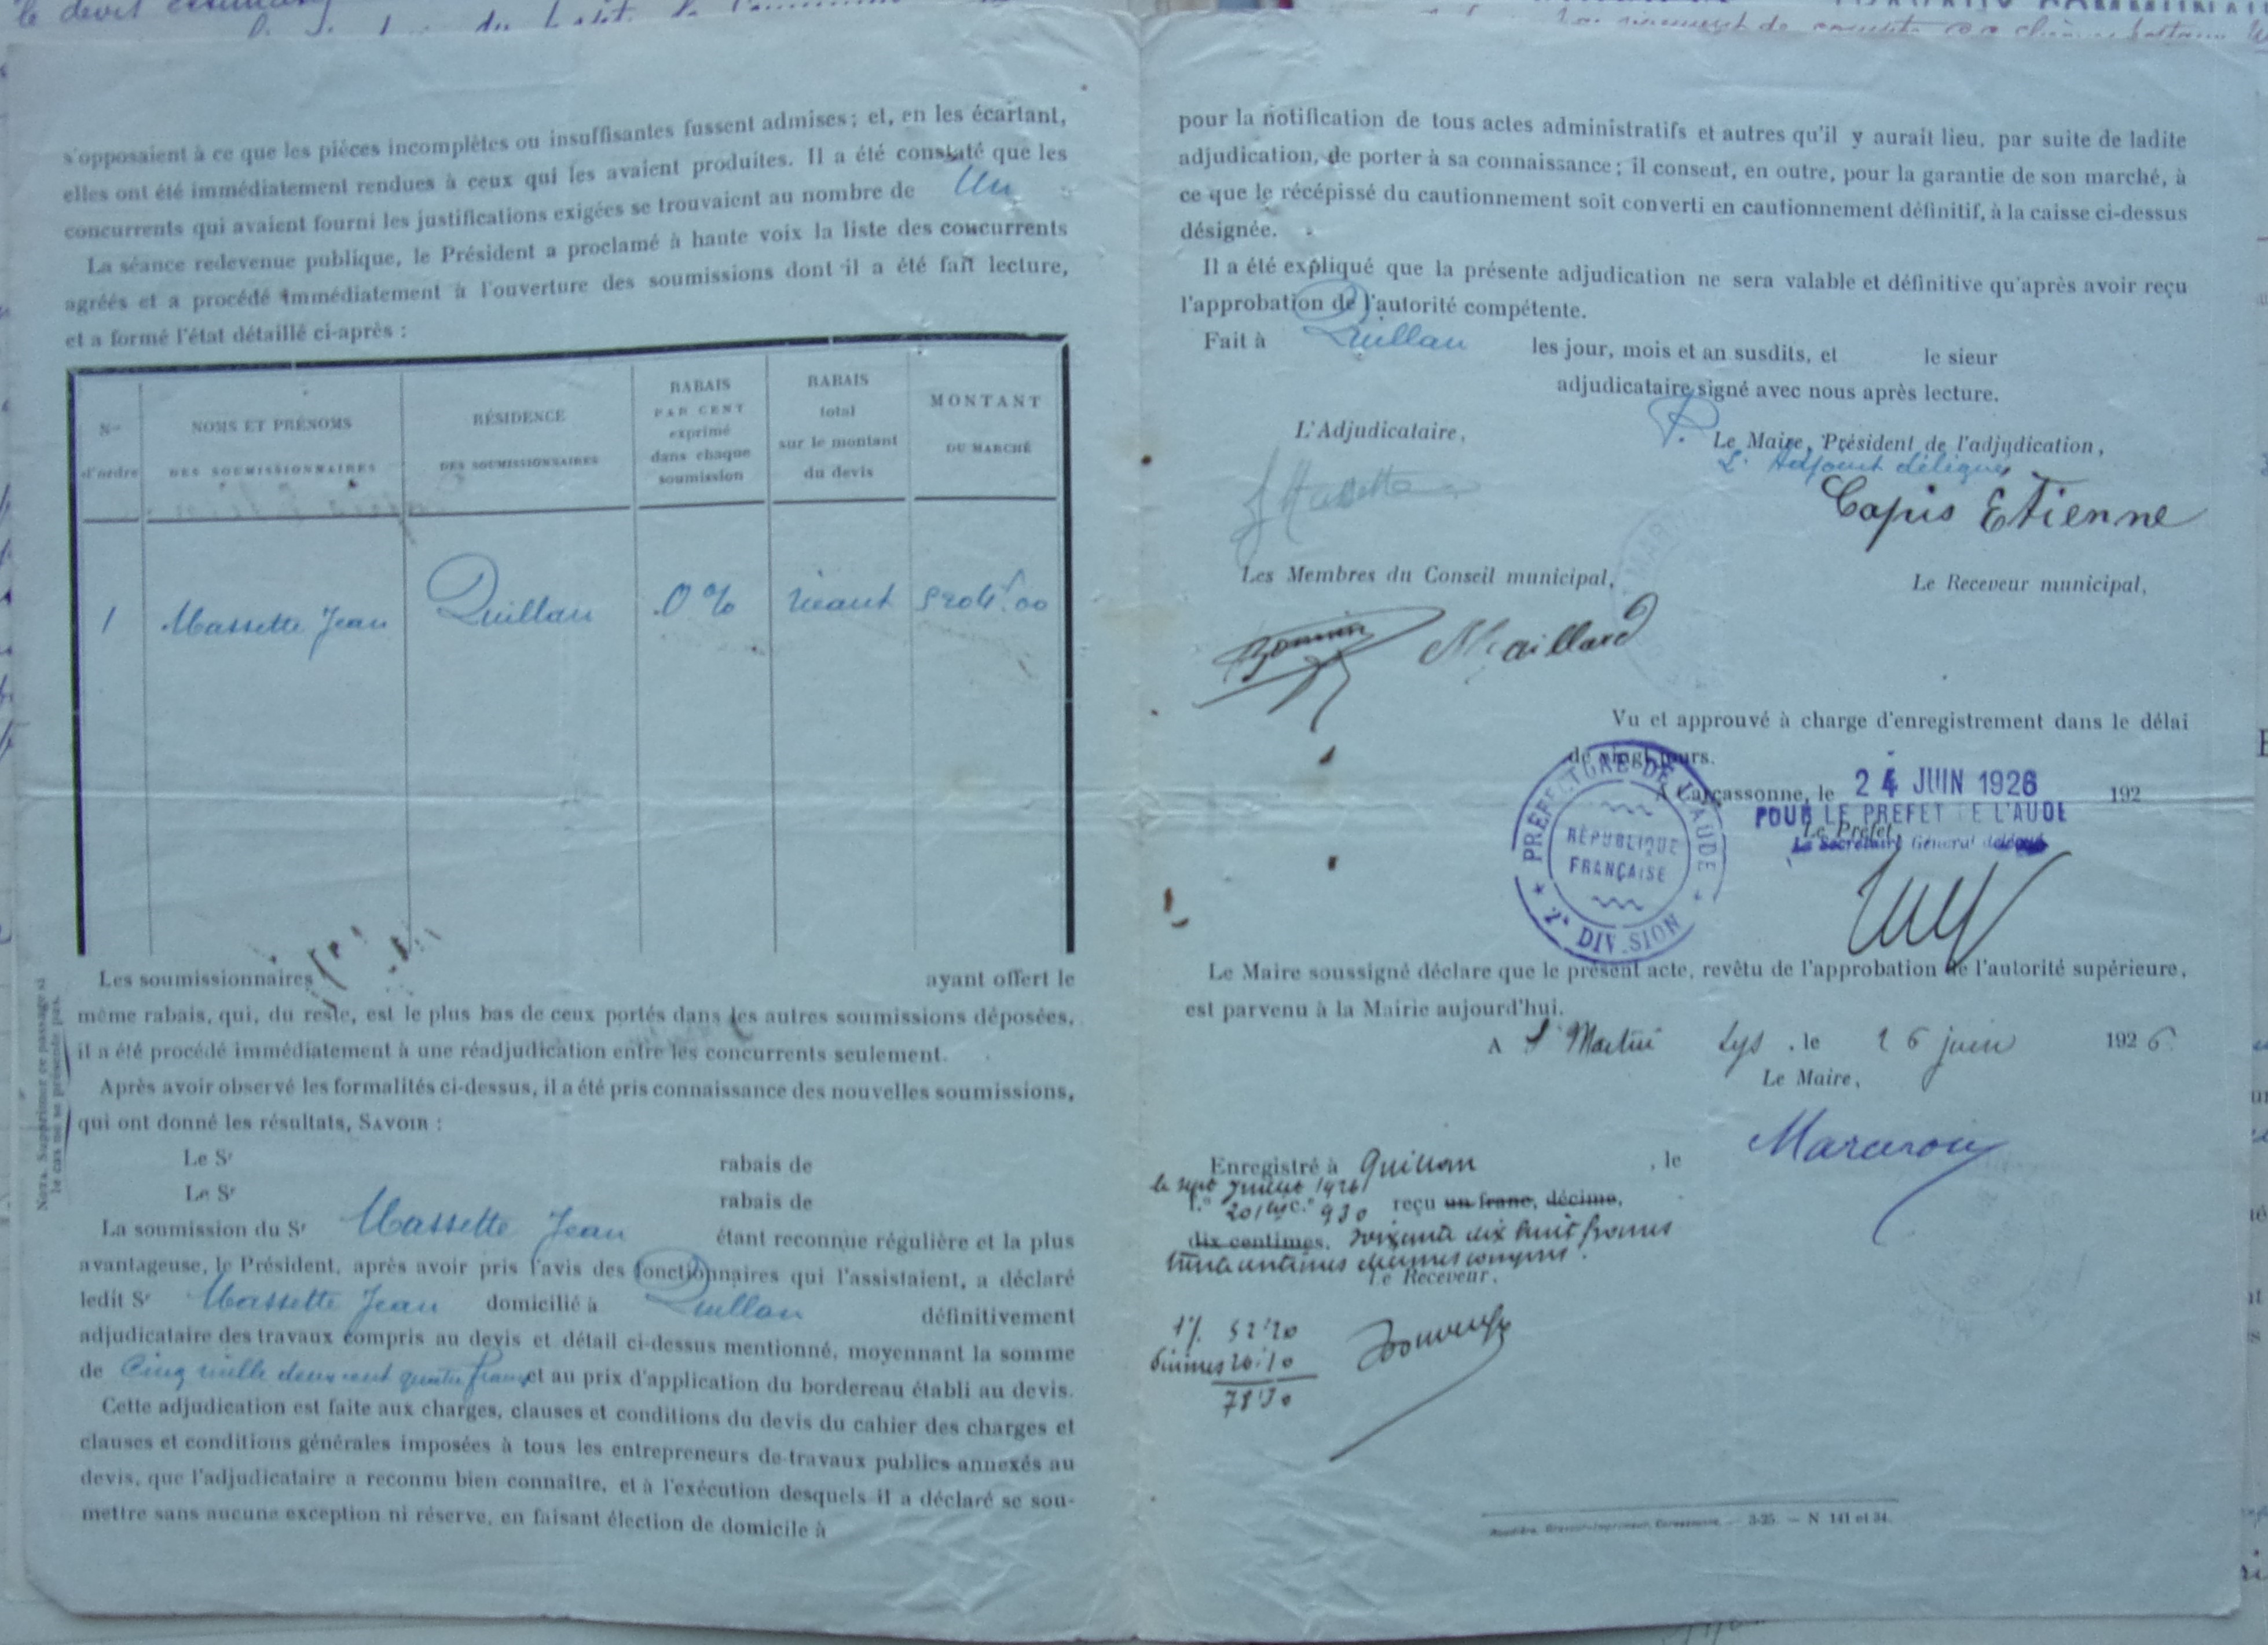 le devis
du
s'opposaient à ce que les pièces incomplètes ou insuffisantes fussent admises; et, en les écartant,
elles ont été immédiatement rendues à ceux qui les avaient produites. Il a été constaté que les
concurrents qui avaient fourni les justifications exigées se trouvaient au nombre de Un
La séance redevenue publique, le Président a proclamé à haute voix la liste des concurrents
agréés et a procédé immédiatement à l'ouverture des soumissions dont il a été fait lecture,
et a formé l'état détaillé ci-après :
Nos d'ordre
NOMS ET PRÉNOMS DES SOUMISSIONNAIRES
RÉSIDENCE DES SOUMISSIONNAIRES
RABAIS PAR CENT exprimé dans chaque soumission
RABAIS total sur le montant du devis
MONTANT DU MARCHÉ
1 Massette Jean Quillan 0 % néant 5204f.00
Les soumissionnaires ayant offert le
même rabais, qui, du reste, est le plus bas de ceux portés dans les autres soumissions déposées,
il a été procédé immédiatement à une réadjudication entre les concurrents seulement.
Après avoir observé les formalités ci-dessus, il a été pris connaissance des nouvelles soumissions,
qui ont donné les résultats, SAVOIR :
Nota. Supprimer ce passage si
le cas ne se présente pas.
Le Sr rabais de
Le Sr rabais de
La soumission du Sr Massette Jean étant reconnue régulière et la plus
avantageuse, le Président, après avoir pris l'avis des fonctionnaires qui l'assistaient, a déclaré
ledit Sr Massette Jean domicilié à Quillan définitivement
adjudicataire des travaux compris au devis et détail ci-dessus mentionné, moyennant la somme
de Cinq mille deux cent quatre francs et au prix d'application du bordereau établi au devis.
Cette adjudication est faite aux charges, clauses et conditions du devis du cahier des charges et
clauses et conditions générales imposées à tous les entrepreneurs de travaux publics annexés au
devis, que l'adjudicataire a reconnu bien connaître, et à l'exécution desquels il a déclaré se sou-
mettre sans aucune exception ni réserve, en faisant élection de domicile à
pour la notification de tous actes administratifs et autres qu'il y aurait lieu, par suite de ladite
adjudication, de porter à sa connaissance; il consent, en outre, pour la garantie de son marché, à
ce que le récépissé du cautionnement soit converti en cautionnement définitif, à la caisse ci-dessus
désignée.
Il a été expliqué que la présente adjudication ne sera valable et définitive qu'après avoir reçu
l'approbation de l'autorité compétente.
Fait à Quillan les jour, mois et an susdits, et le sieur
adjudicataire signé avec nous après lecture.
L'Adjudicataire,
P. Le Maire, Président de l'adjudication,
L'Adjoint délégué
J Massette
Capis Etienne
Les Membres du Conseil municipal,
Le Receveur municipal,
Maillard
Vu et approuvé à charge d'enregistrement dans le délai
de vingt jours.
A Carcassonne, le 24 JUIN 1926 192
POUR LE PREFET DE L'AUDE
Le Préfet,
Le Secrétaire Général délégué
PREFECTURE DE L'AUDE
RÉPUBLIQUE
FRANÇAISE
2e DIVISION
Le Maire soussigné déclare que le présent acte, revêtu de l'approbation de l'autorité supérieure,
est parvenu à la Mairie aujourd'hui.
A St Martin Lys, le 26 juin 1926.
Le Maire,
Enregistré à Quillan , le
le sept Juillet 1926
F° c.° 930 reçu un franc, décime,
dix centimes. soixante dix huit francs
trente centimes décimes compris.
Le Receveur,
1% 52.20
Décimes 26.10
78.30
Carcassonne. — 3-25. — N 141 et 34.